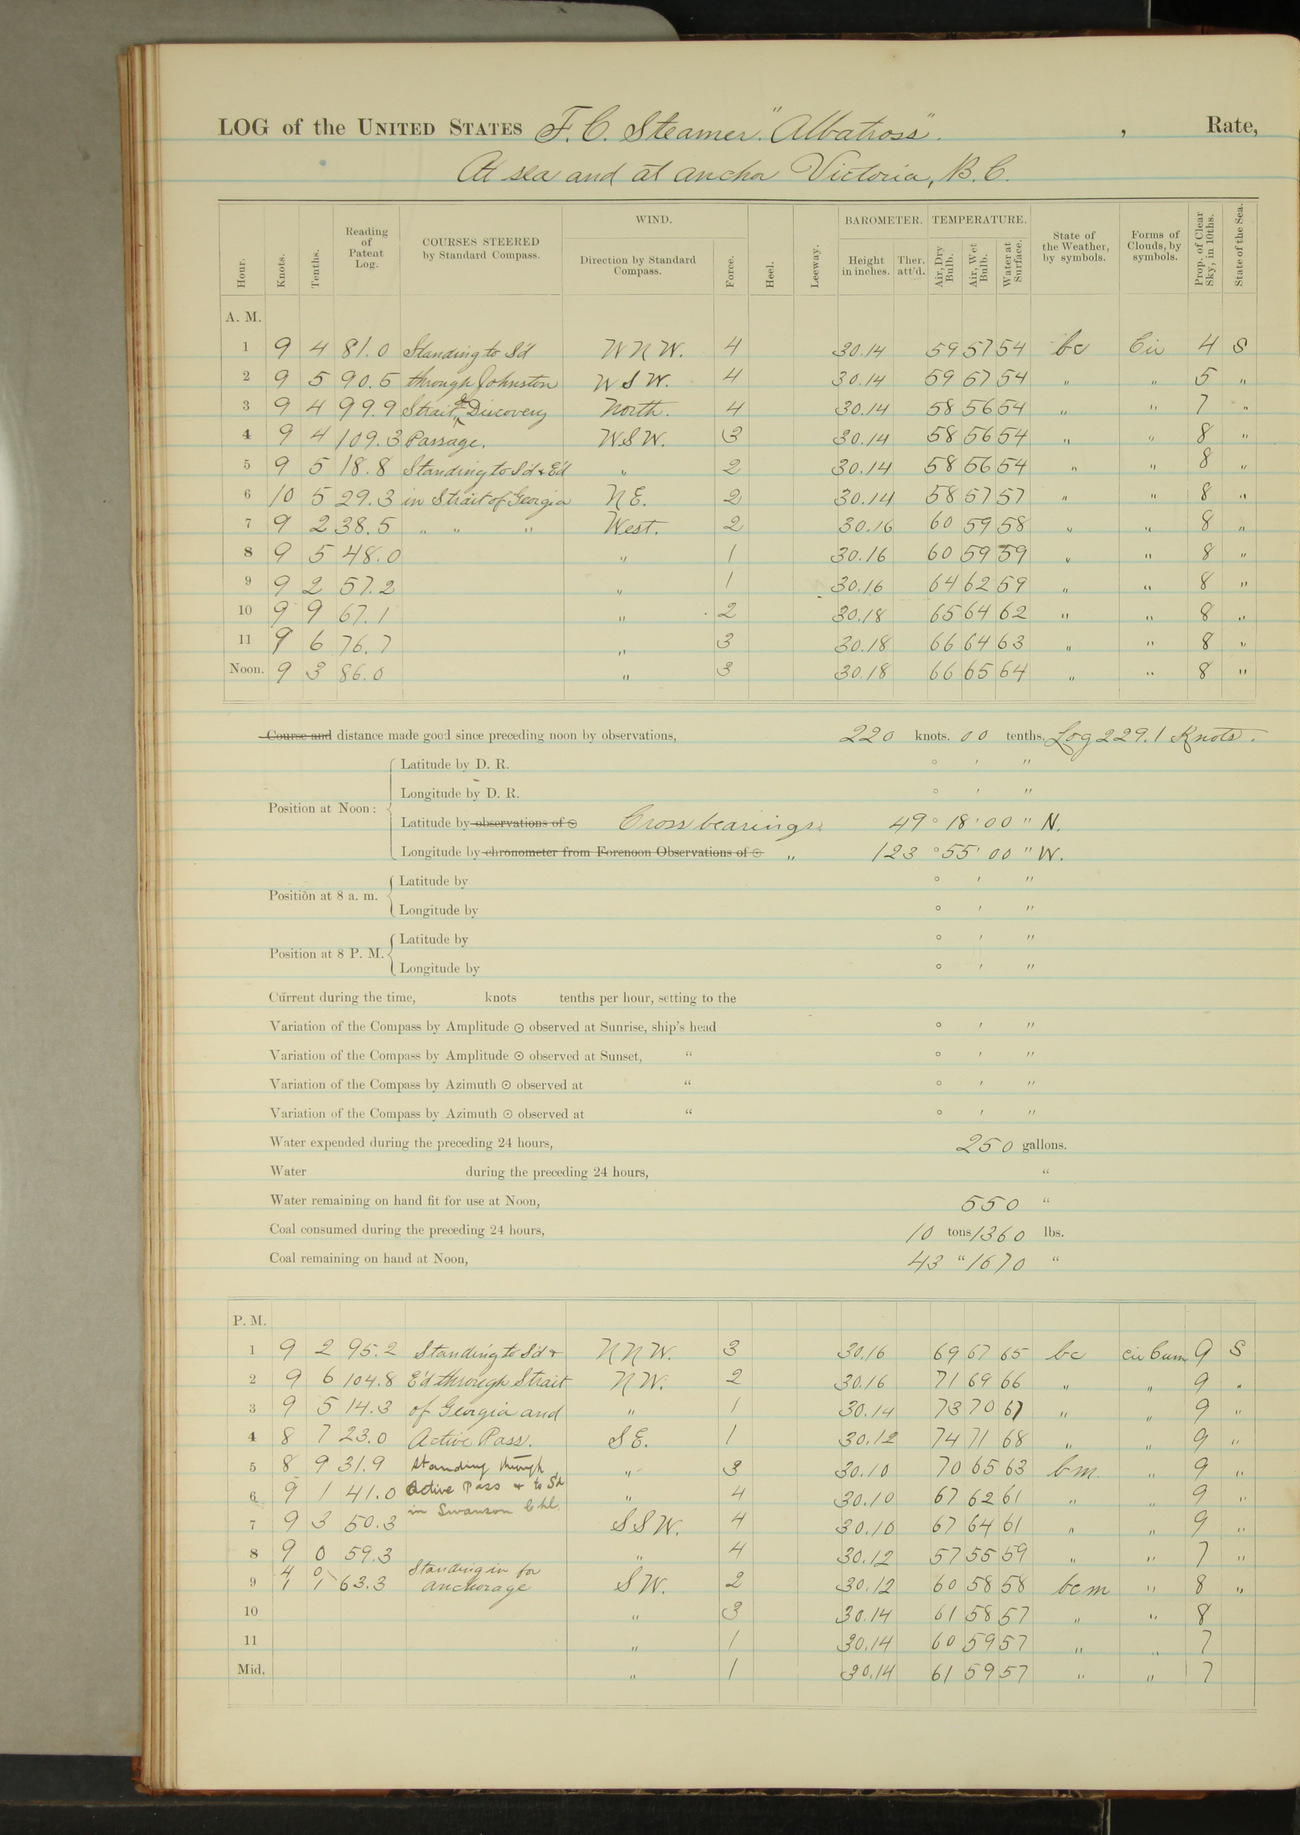 LOG of the UNITED STATES F. C. Steamer "Albatross". , Rate,
At sea and at anchor Victoria, B. C.
Hour. Knots. Tenths. Reading of Patent Log. COURSES STEERED by Standard Compass. WIND. Direction by Standard Compass. Force. Heel. Leeway. BAROMETER. Height in inches. Ther. att'd. TEMPERATURE. Air, Dry Bulb. Air, Wet Bulb. Water at Surface. State of the Weather, by symbols. Forms of Clouds, by symbols. Prop. of Clear Sky, in 10ths. State of the Sea.
A. M.
1 9 4 81.0 Standing to Sd W N W. 4 30.14 59 57 54 bc Cir 4 S
2 9 5 90.5 through Johnston W S W. 4 30.14 59 57 54 " " 5 "
3 9 4 99.9 Strait & Discovery North. 4 30.14 58 56 54 " " 7 "
4 9 4 109.3 Passage. W S W. 3 30.14 58 56 54 " " 8 "
5 9 5 18.8 Standing to Sd & Ed " 2 30.14 58 56 54 " " 8 "
6 10 5 29.3 in Strait of Georgia N E. 2 30.14 58 57 57 " " 8 "
7 9 2 38.5 " " " West. 2 30.16 60 59 58 " " 8 "
8 9 5 48.0 " 1 30.16 60 59 59 " " 8 "
9 9 2 57.2 " 1 30.16 64 62 59 " " 8 "
10 9 9 67.1 " 2 30.18 65 64 62 " " 8 "
11 9 6 76.7 " 3 30.18 66 64 63 " " 8 "
Noon. 9 3 86.0 " 3 30.18 66 65 64 " " 8 "
Course and distance made good since preceding noon by observations, 220 knots. 00 tenths. Log 229.1 Knots.
Latitude by D. R. ° ' "
Longitude by D. R. ° ' "
Position at Noon:
Latitude by observations of ☉ Cross bearings 49° 18' 00" N.
Longitude by chronometer from Forenoon Observations of ☉ " 123° 55' 00" W.
Latitude by ° ' "
Position at 8 a. m.
Longitude by ° ' "
Latitude by ° ' "
Position at 8 P. M.
Longitude by ° ' "
Current during the time, knots tenths per hour, setting to the
Variation of the Compass by Amplitude ☉ observed at Sunrise, ship's head ° ' "
Variation of the Compass by Amplitude ☉ observed at Sunset, " ° ' "
Variation of the Compass by Azimuth ☉ observed at " ° ' "
Variation of the Compass by Azimuth ☉ observed at " ° ' "
Water expended during the preceding 24 hours, 250 gallons.
Water during the preceding 24 hours, "
Water remaining on hand fit for use at Noon, 550 "
Coal consumed during the preceding 24 hours, 10 tons 1360 lbs.
Coal remaining on hand at Noon, 43 " 1670 "
P. M.
1 9 2 95.2 Standing to Sd & N N W. 3 30.16 69 67 65 bc cir Cum 9 S
2 9 6 104.8 Ed through Strait N W. 2 30.16 71 69 66 " " 9 "
3 9 5 14.3 of Georgia and " 1 30.14 73 70 67 " " 9 "
4 8 7 23.0 Active Pass. S E. 1 30.12 74 71 68 " " 9 "
5 8 9 31.9 Standing through " 3 30.10 70 65 63 bm. " 9 "
6 9 1 41.0 Active Pass & to Sd " 4 30.10 67 62 61 " " 9 "
in Swanson Chl.
7 9 3 50.3 S S W. 4 30.10 67 64 61 " " 9 "
8 9 0 59.3 " 4 30.12 57 55 59 " " 7 "
Standing in for
9 4 0 63.3 anchorage S W. 2 30.12 60 58 58 bcm " 8 "
10 " 3 30.14 61 58 57 " " 8
11 " 1 30.14 60 59 57 " " 7
Mid. " 1 30.14 61 59 57 " " 7